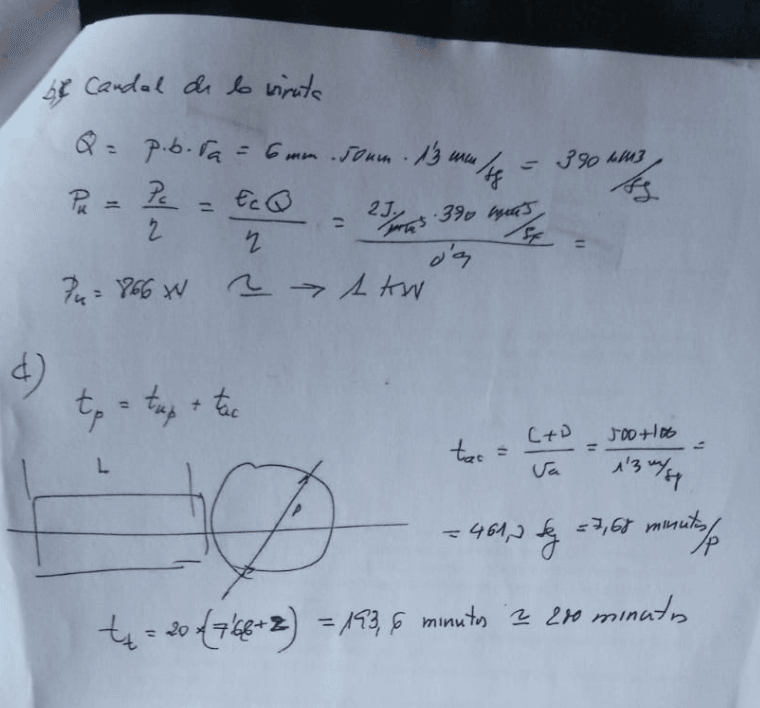 b) Caudal de la viruta
Q = p.b.Va = 6 mm . 50mm . 1'3 mm/sg = 390 mm3/sg
Pu = Pc/η = Ec Q/η = 2J/mm3 . 390 mm3/sg / 0'9 =
Pu = 866 W ≃ → 1 kW
d)
tp = tup + tac
tac = L+D/Va = 500+100/1'3 m/sg =
L
D
= 461,2 sg = 7,68 minutos/p
tt = 20 x (7'68+2) = 193,6 minutos ≃ 200 minutos